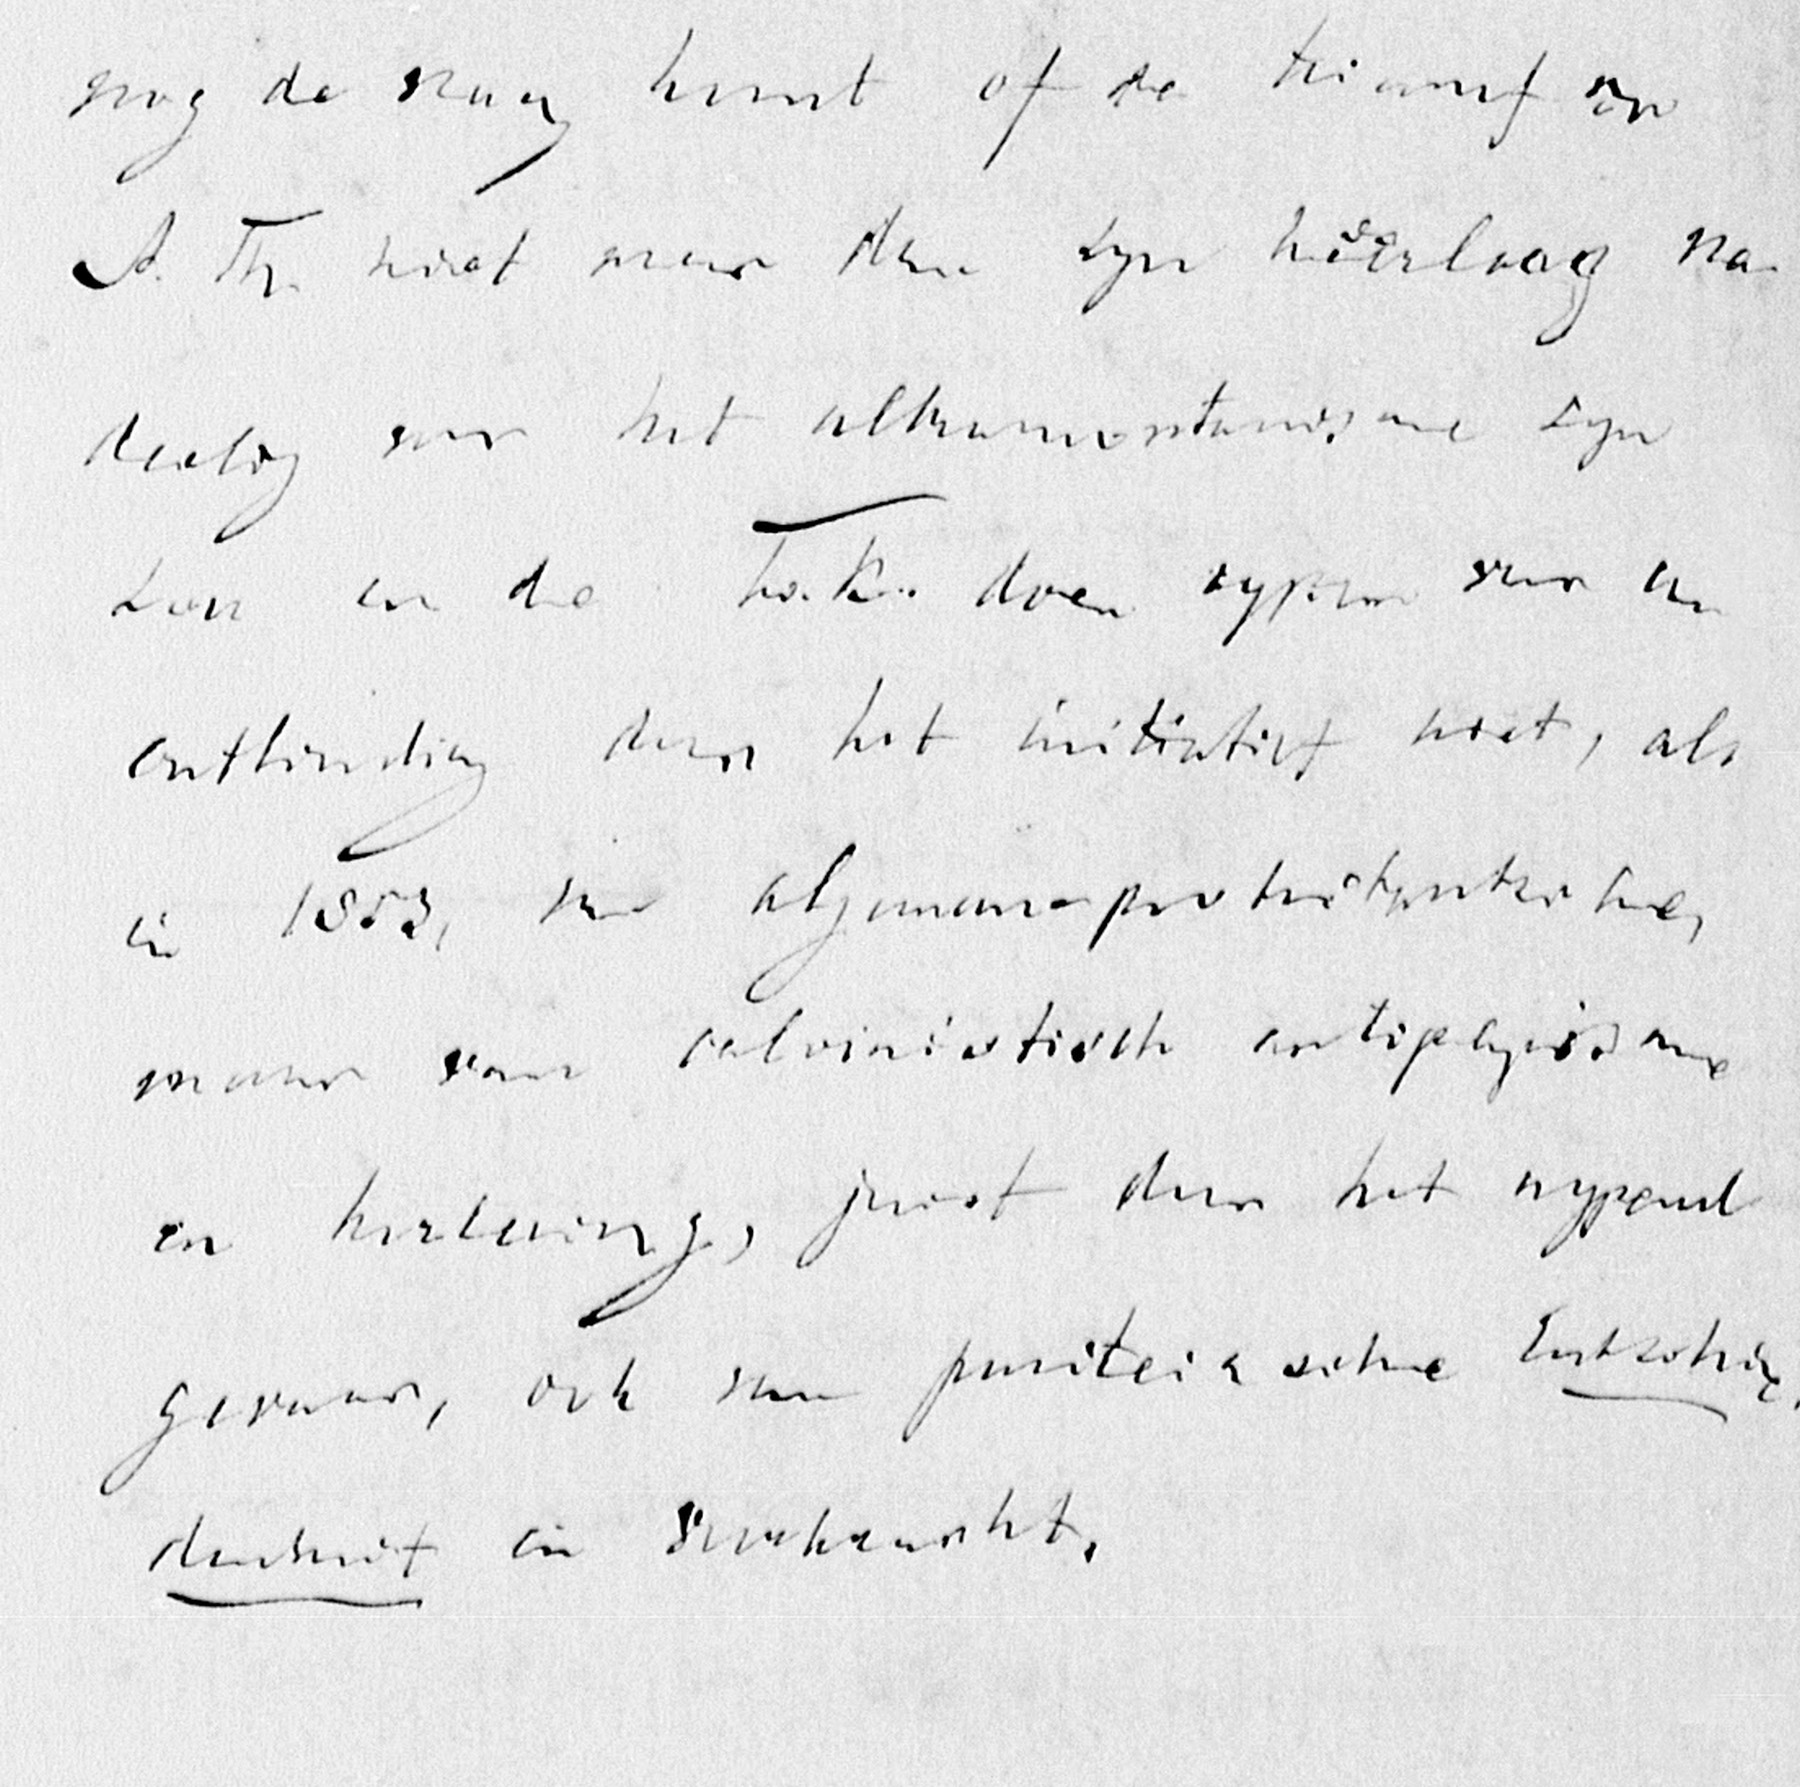 nog de vraag komt of de triumf v.
A. Th. niet meer dan zyn nêerlaag na-
deelig voor het ultramontanisme zyn
zou en de T.K. doen rypen voor een
ontbinding door het initiatief niet, als
in 1853, van algemeen-protestantsche,
maar van calvinistisch antipapisme
en herleving, juist door het nypend
gevaar, ook van puriteinsche Entschie-
denheit in veerkracht.